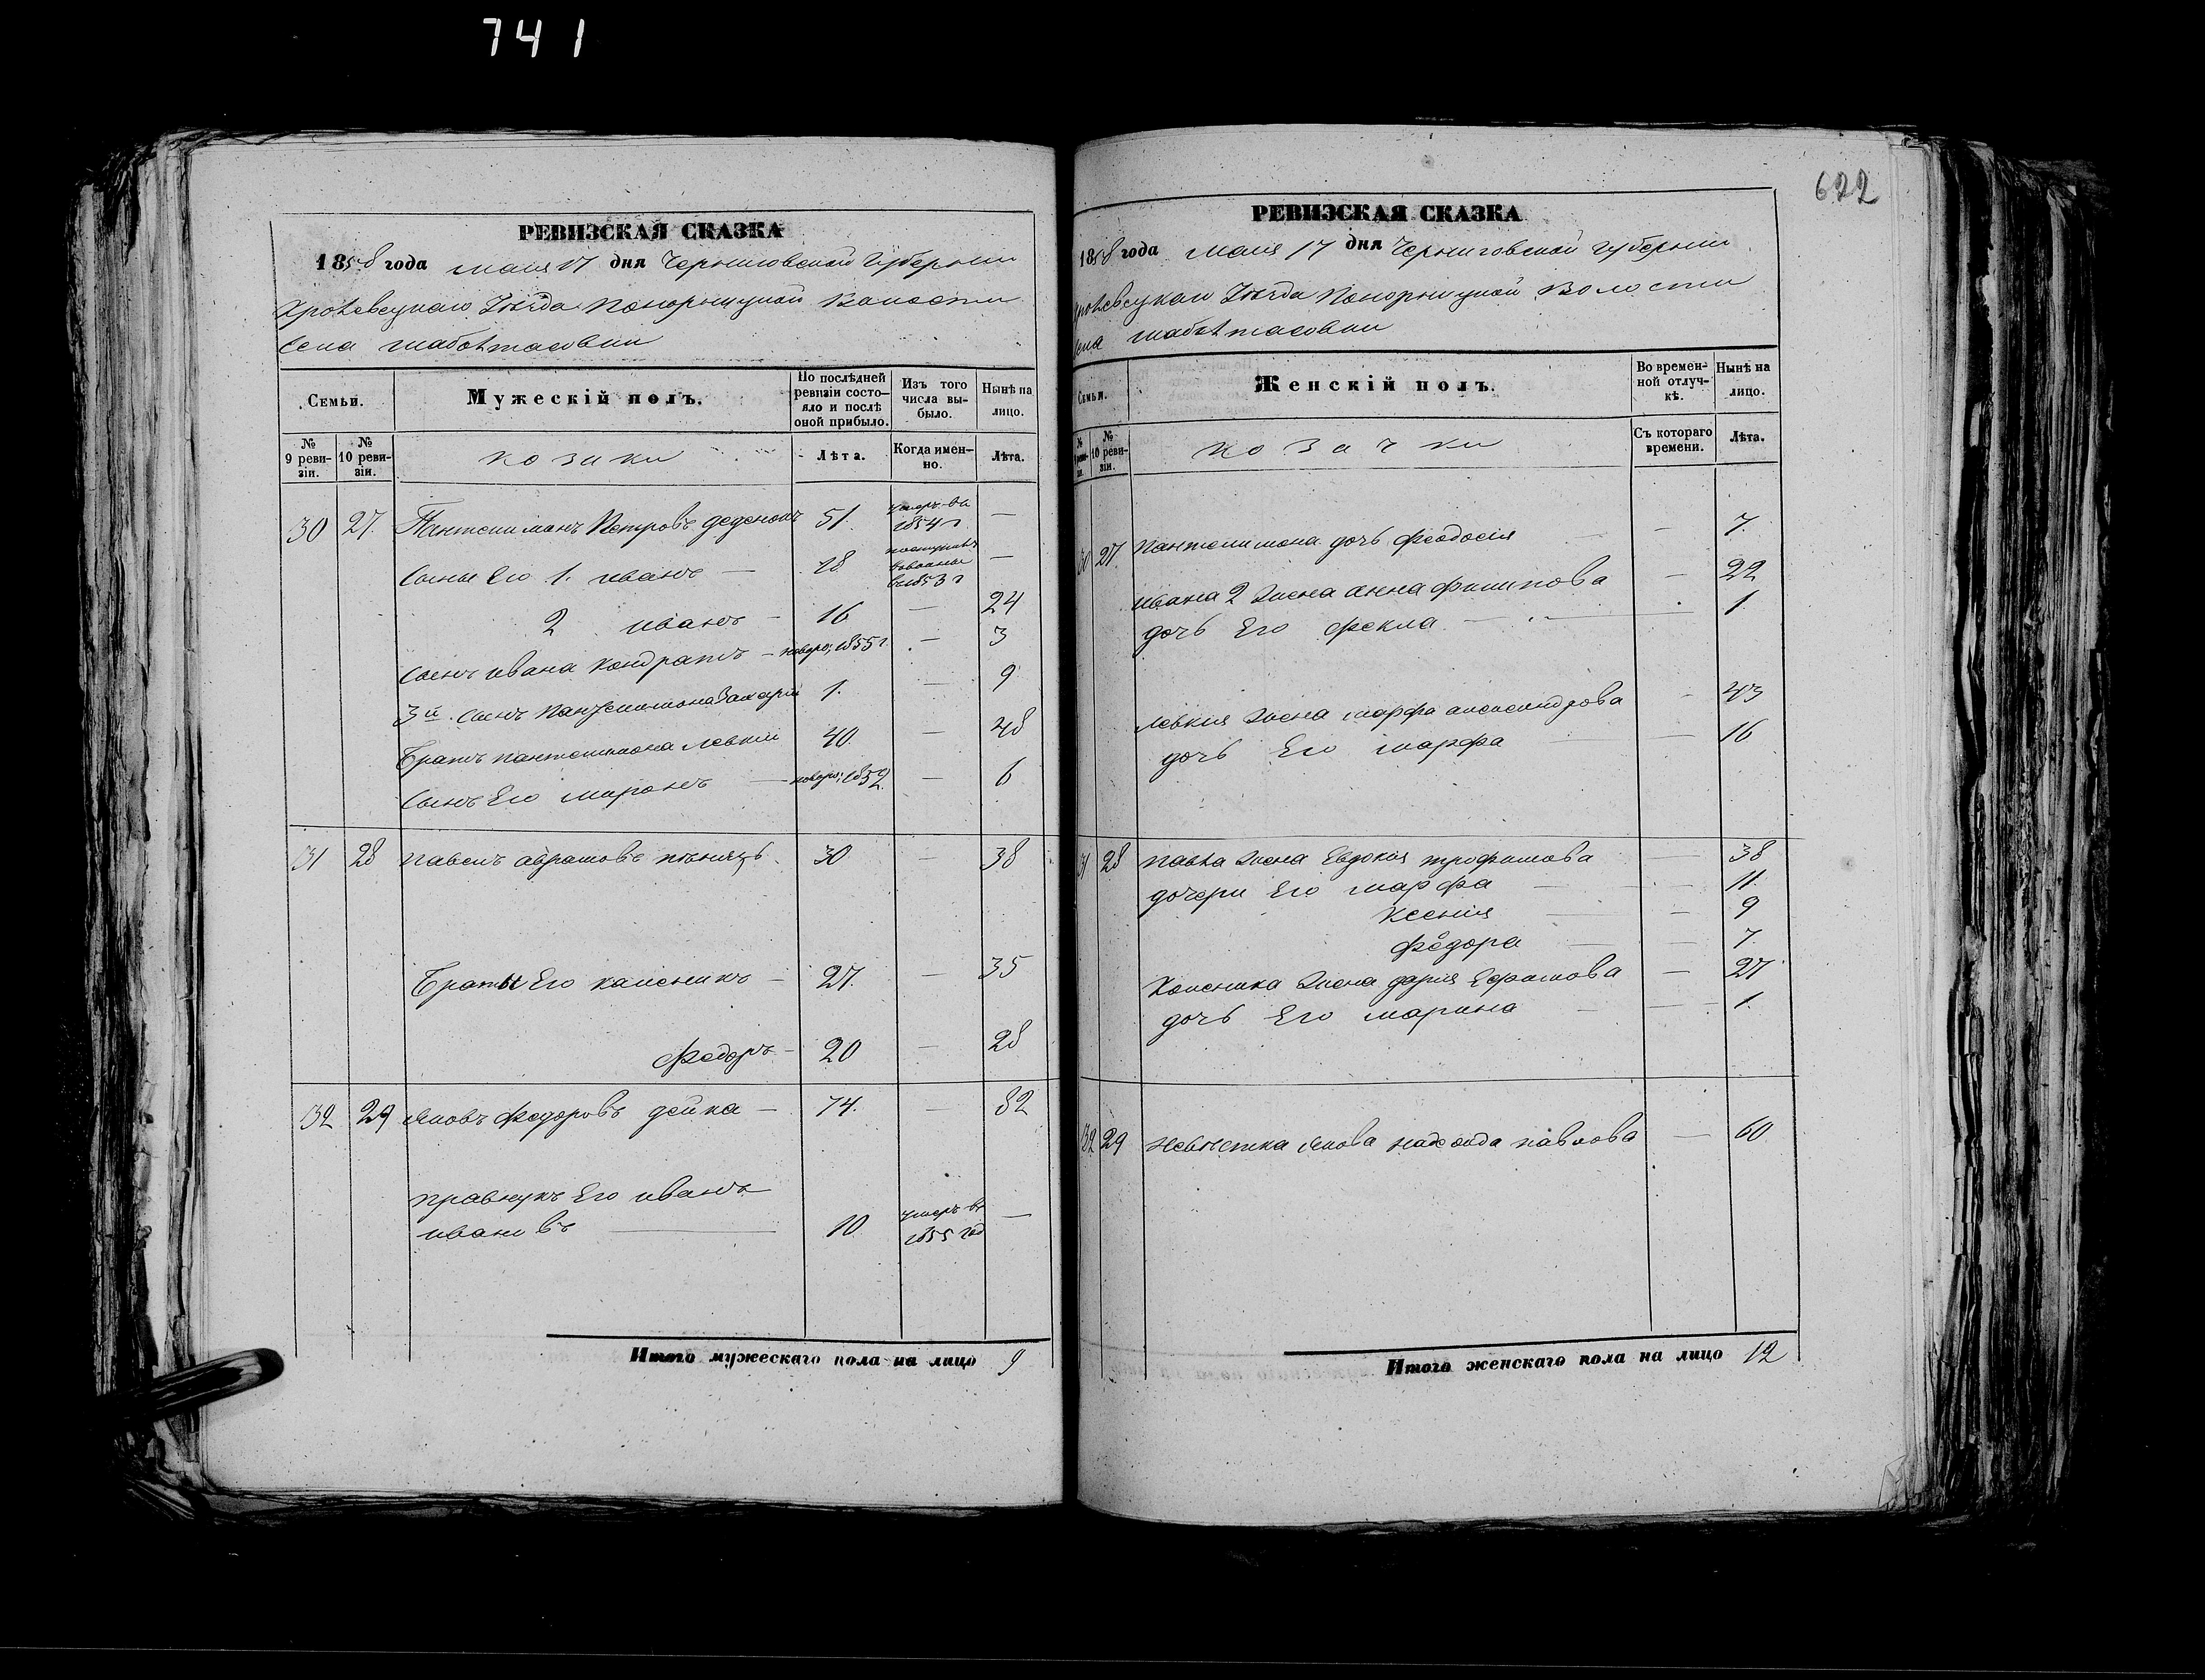 741
622
РЕВИЗСКАЯ СКАЗКА
1858 года мая 17 дня Черниговской Губернии
Кролевецкаго Уѣзда Понорницкой Волости
Села
Семьи.
Мужескій полъ.
По послѣдней ревизіи состо-
яло и послѣ оной прибыло.
Изъ того числа вы-
было.
Нынѣ на лицо.
№ 9 реви-
зіи.
№ 10 реви-
зіи.
козаки
Лѣта.
Когда имен-
но.
Лѣта.
30 27. Пантелимонъ Петровъ 51. умеръ въ 1854 г. —
Сыны Его 1. иванъ — 18. въ 1853 г —
2 иванъ — 16 — 24
Сынъ ивана кондратъ — новоро; 1855 г. — 3
3й. Сынъ Пантелимона Захарій 1. — 9
Братъ пантелимона левкій 40. — 48
Сынъ Его миронъ — новоро; 1852. — 6
131 28 павелъ абрамовъ 30 — 38
Браты Его каленикъ — 27. — 35
Федоръ — 20 — 28
132 29 яковъ Федоровъ дейка — 74. — 82
правнукъ Его иванъ
ивановъ — 10 умеръ въ 1855 год —
Итого мужескаго пола на лицо 9
РЕВИЗСКАЯ СКАЗКА
1858 года мая 17 дня Черниговской губернии
Кролевецкаго Уѣзда Понорницкой Волости
Села
Семьи.
Женскій полъ.
Во времен-
ной отлуч-
кѣ.
Нынѣ на лицо.
№ 9 реви-
зіи.
№ 10 реви-
зіи.
козачки
Съ котораго времени.
Лѣта.
30 27. Пантелимона дочь феодосія — 7.
ивана 2 жена анна филипова — 22
дочь Его фекла — 1.
левкія жена марфа александрова — 43
дочь Его марфа — 16
31 28 павла жена Евдокія трофимова — 38
дочери Его марфа — 11.
Ксенія — 9
Федора — 7.
Коленика жена дарія Ефимова — 27
дочь Его марина — 1.
132 29 невѣстка якова надежда павлова — 60
Итого женскаго пола на лицо 12